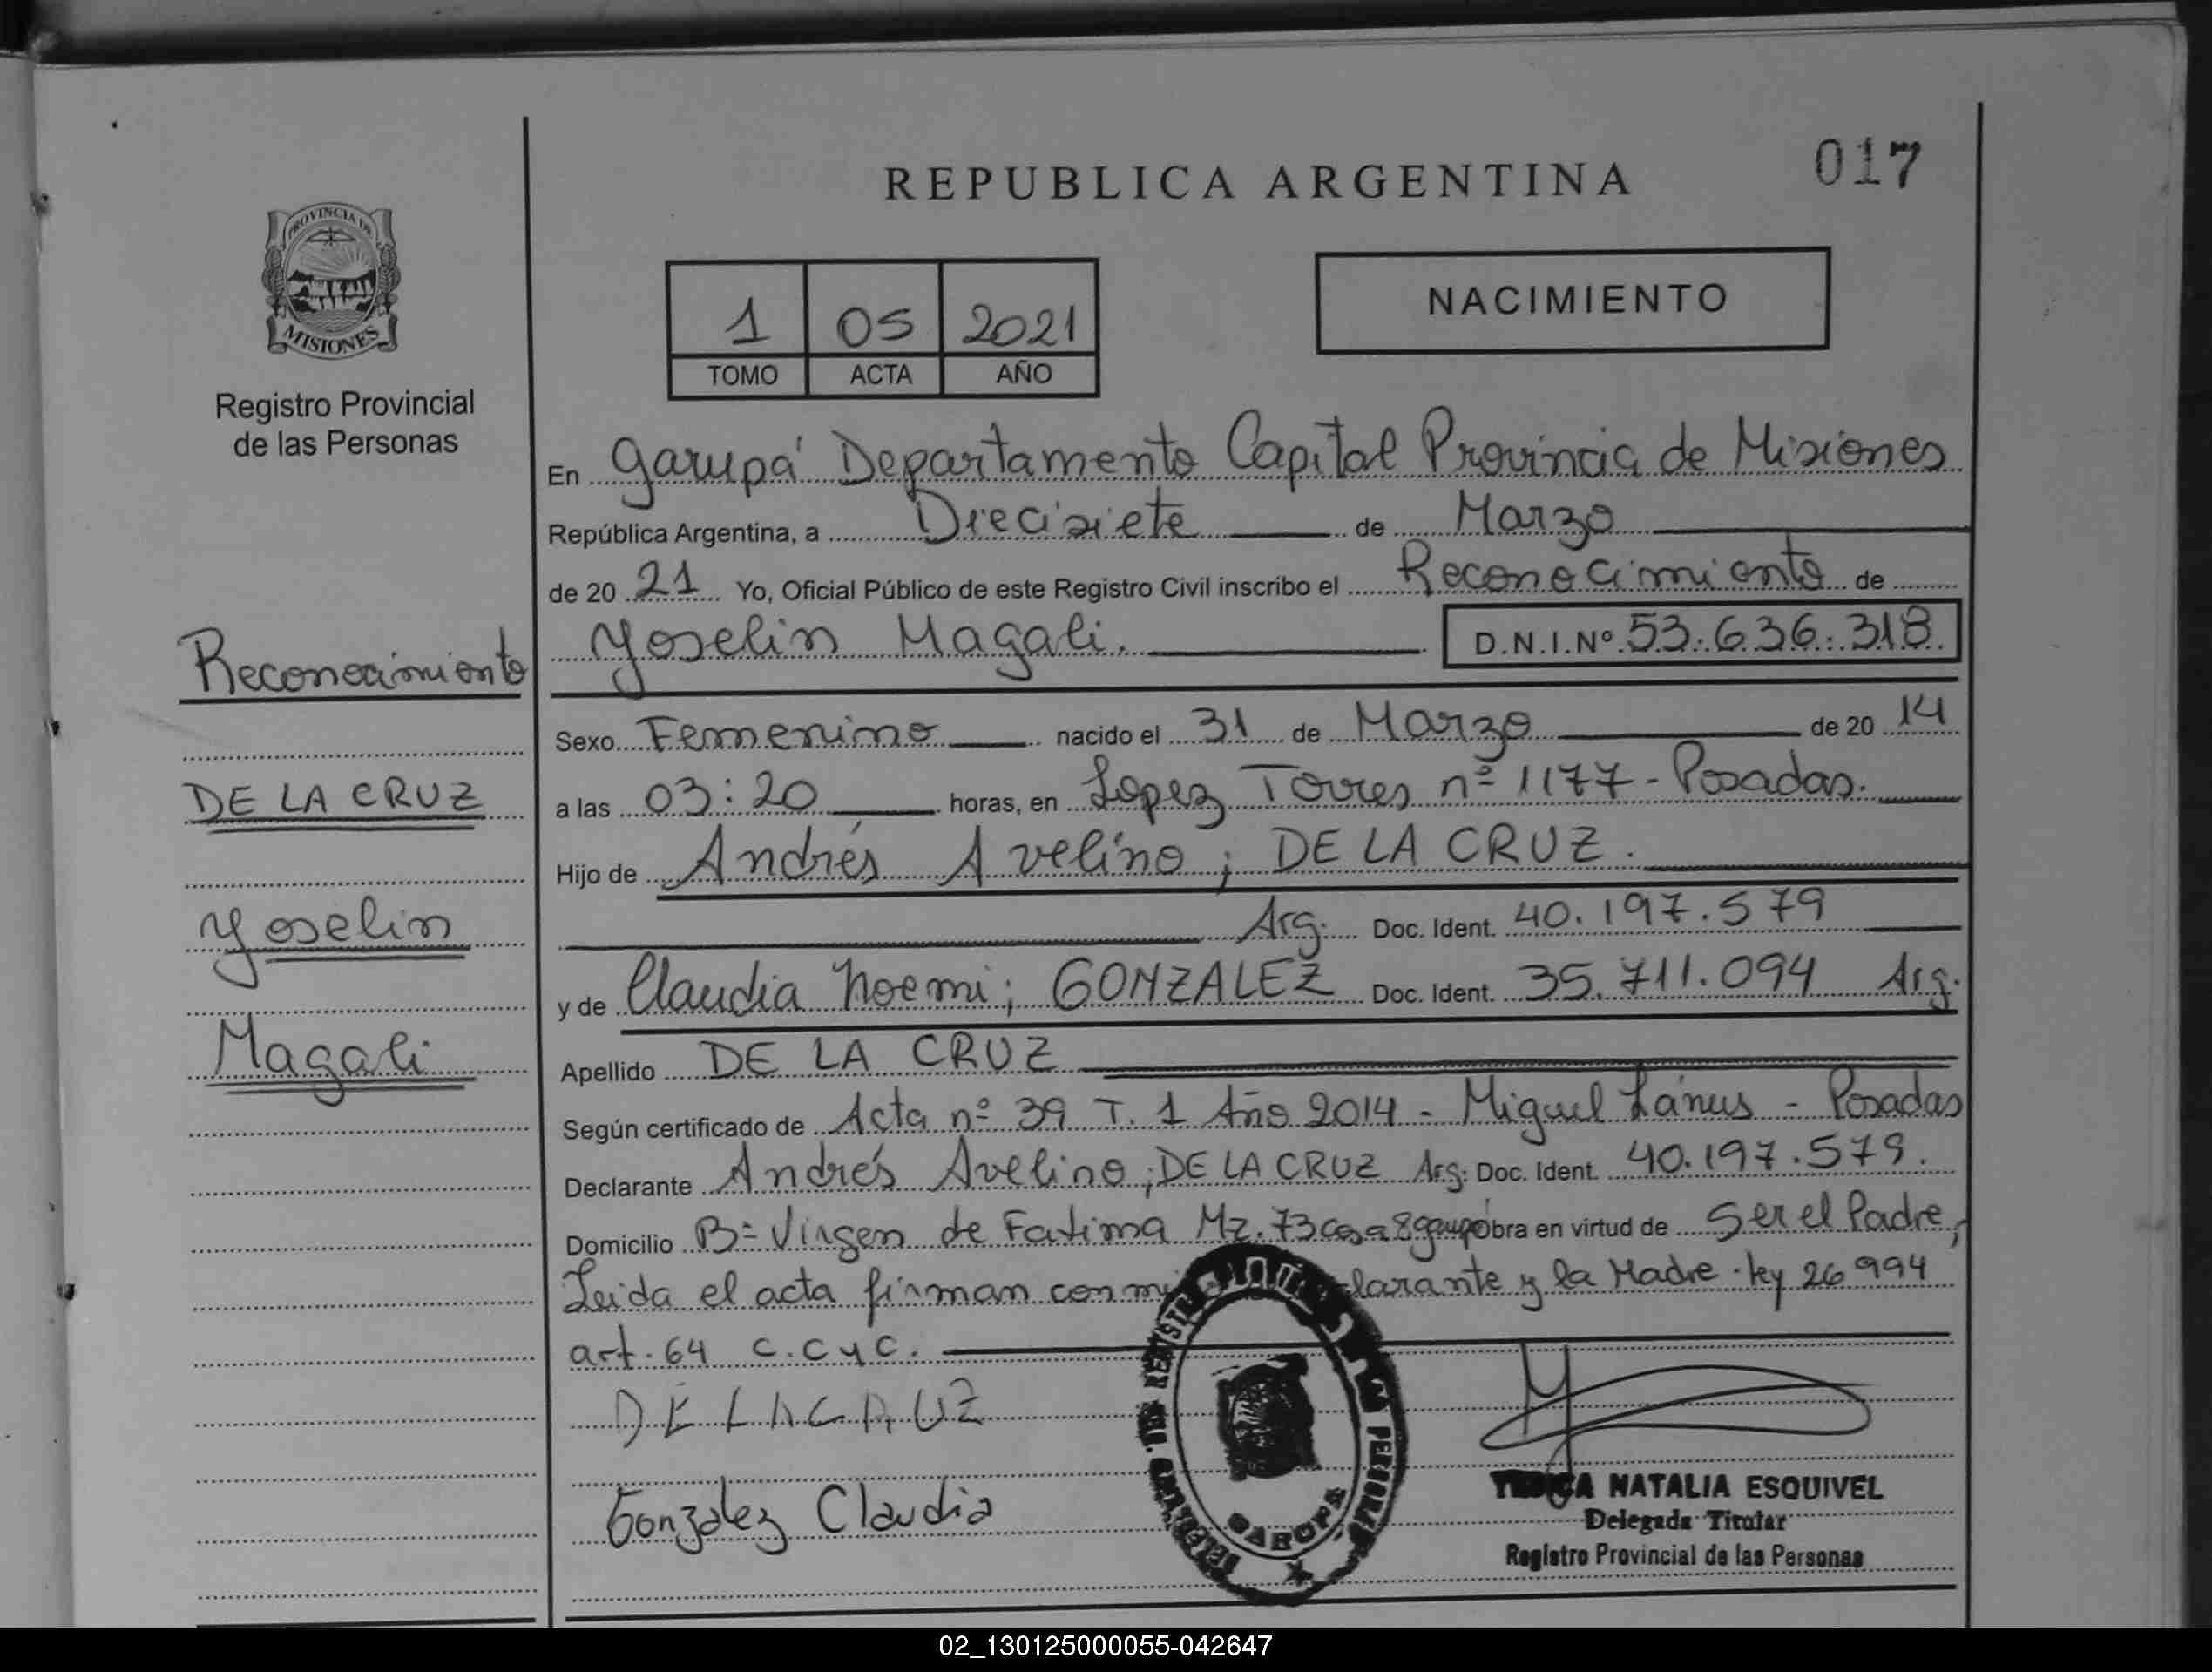 REPUBLICA ARGENTINA
017
PROVINCIA DE
MISIONES
Registro Provincial
de las Personas
1 05 2021
TOMO ACTA AÑO
NACIMIENTO
En Garupá Departamento Capital Provincia de Misiones
República Argentina, a Diecisiete de Marzo
de 20 21 Yo, Oficial Público de este Registro Civil inscribo el Reconocimiento de
Yoselin Magali. D.N.I.Nº 53.636.318.
Reconocimiento
DE LA CRUZ
Yoselin
Magali
Sexo Femenino nacido el 31 de Marzo de 20 14
a las 03:20 horas, en Lopez Torres nº 1177 - Posadas.
Hijo de Andrés Avelino; DE LA CRUZ.
Arg. Doc. Ident. 40.197.579
y de Claudia Noemi; GONZALEZ Doc. Ident. 35.711.094 Arg.
Apellido DE LA CRUZ
Según certificado de Acta nº 39 T. 1 Año 2014 - Miguel Lánus - Posadas
Declarante Andrés Avelino; DE LA CRUZ Arg. Doc. Ident. 40.197.579.
Domicilio Bº Virgen de Fatima Mz. 73 casa 8 garupá obra en virtud de Ser el Padre,
Leida el acta firman con mi larante y la Madre. Ley 26994
art. 64 C.C y C.
DE LA CRUZ
Gonzalez Claudia
GARUPA
NATALIA ESQUIVEL
Delegada Titular
Registro Provincial de las Personas
02_130125000055-042647